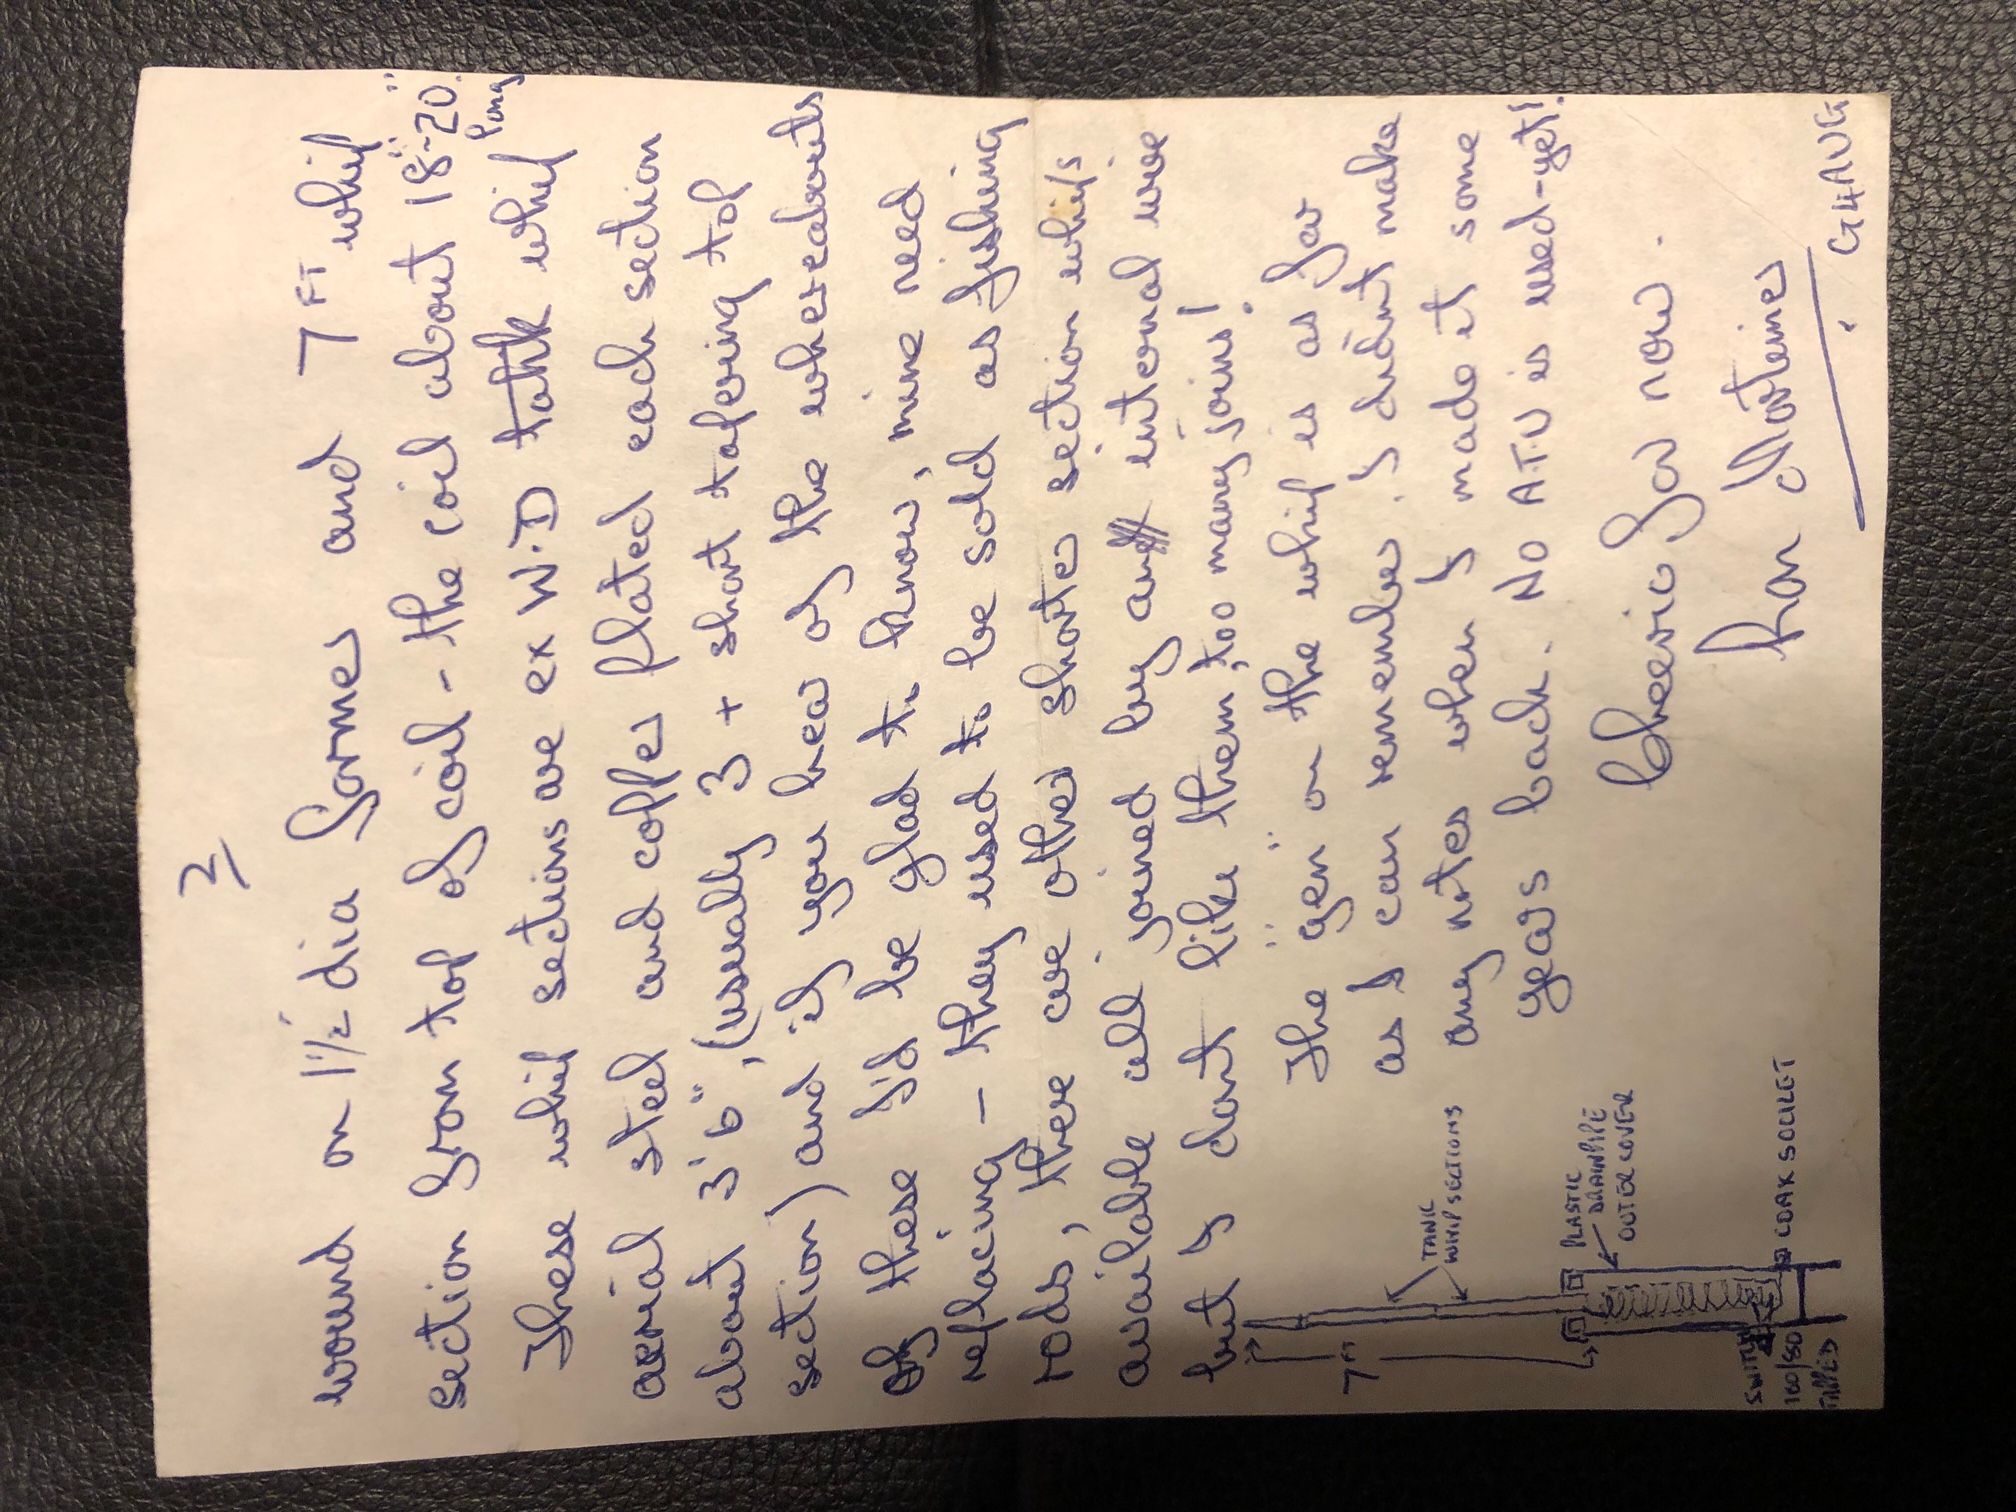 2
wound on 1½" dia former and 7 FT whip
section from top of coil - the coil about 18"-20"
long
These whip sections are ex W.D tank whip
aerial steel and copper plated each section
about 3'6", (usually 3 + short tapering top
section) and if you hear of the whereabouts
of these I'd be glad to know, mine need
replacing - they used to be sold as fishing
rods, there are other shorter section whips
available all joined by an internal wire
but I dont like them, too many joins!
The "gen" on the whip is as far
as I can remember. I didn't make
any notes when I made it some
years back. No A.T.U is used-yet!
Cheerio for now.
Ron Mortimer
G4AUG
7 FT
TANK
WHIP SECTIONS
PLASTIC
DRAINPIPE
OUTER COVER
SWITCH
160/80
TAPPED
COAX SOCKET